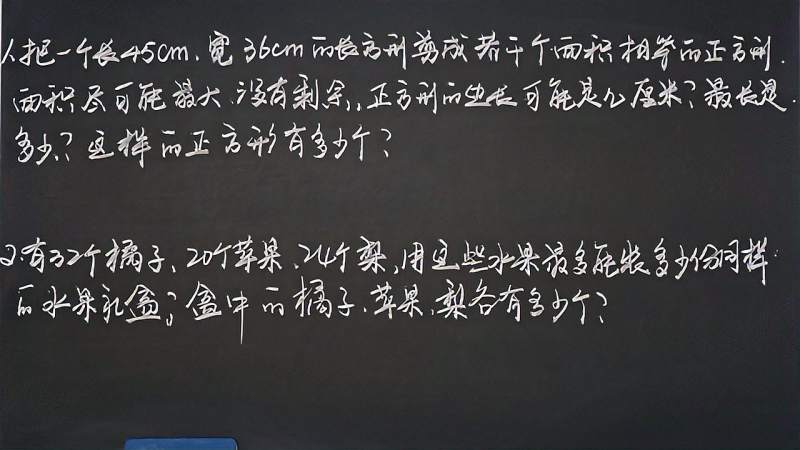 1、把一个长45cm、宽36cm的长方形剪成若干个面积相等的正方形.
面积尽可能最大,没有剩余,正方形的边长可能是几厘米?最长是
多少?这样的正方形有多少个?
2、有32个橘子、20个苹果、24个梨,用这些水果最多能装多少份同样
的水果礼盒?盒中的橘子、苹果、梨各有多少个?